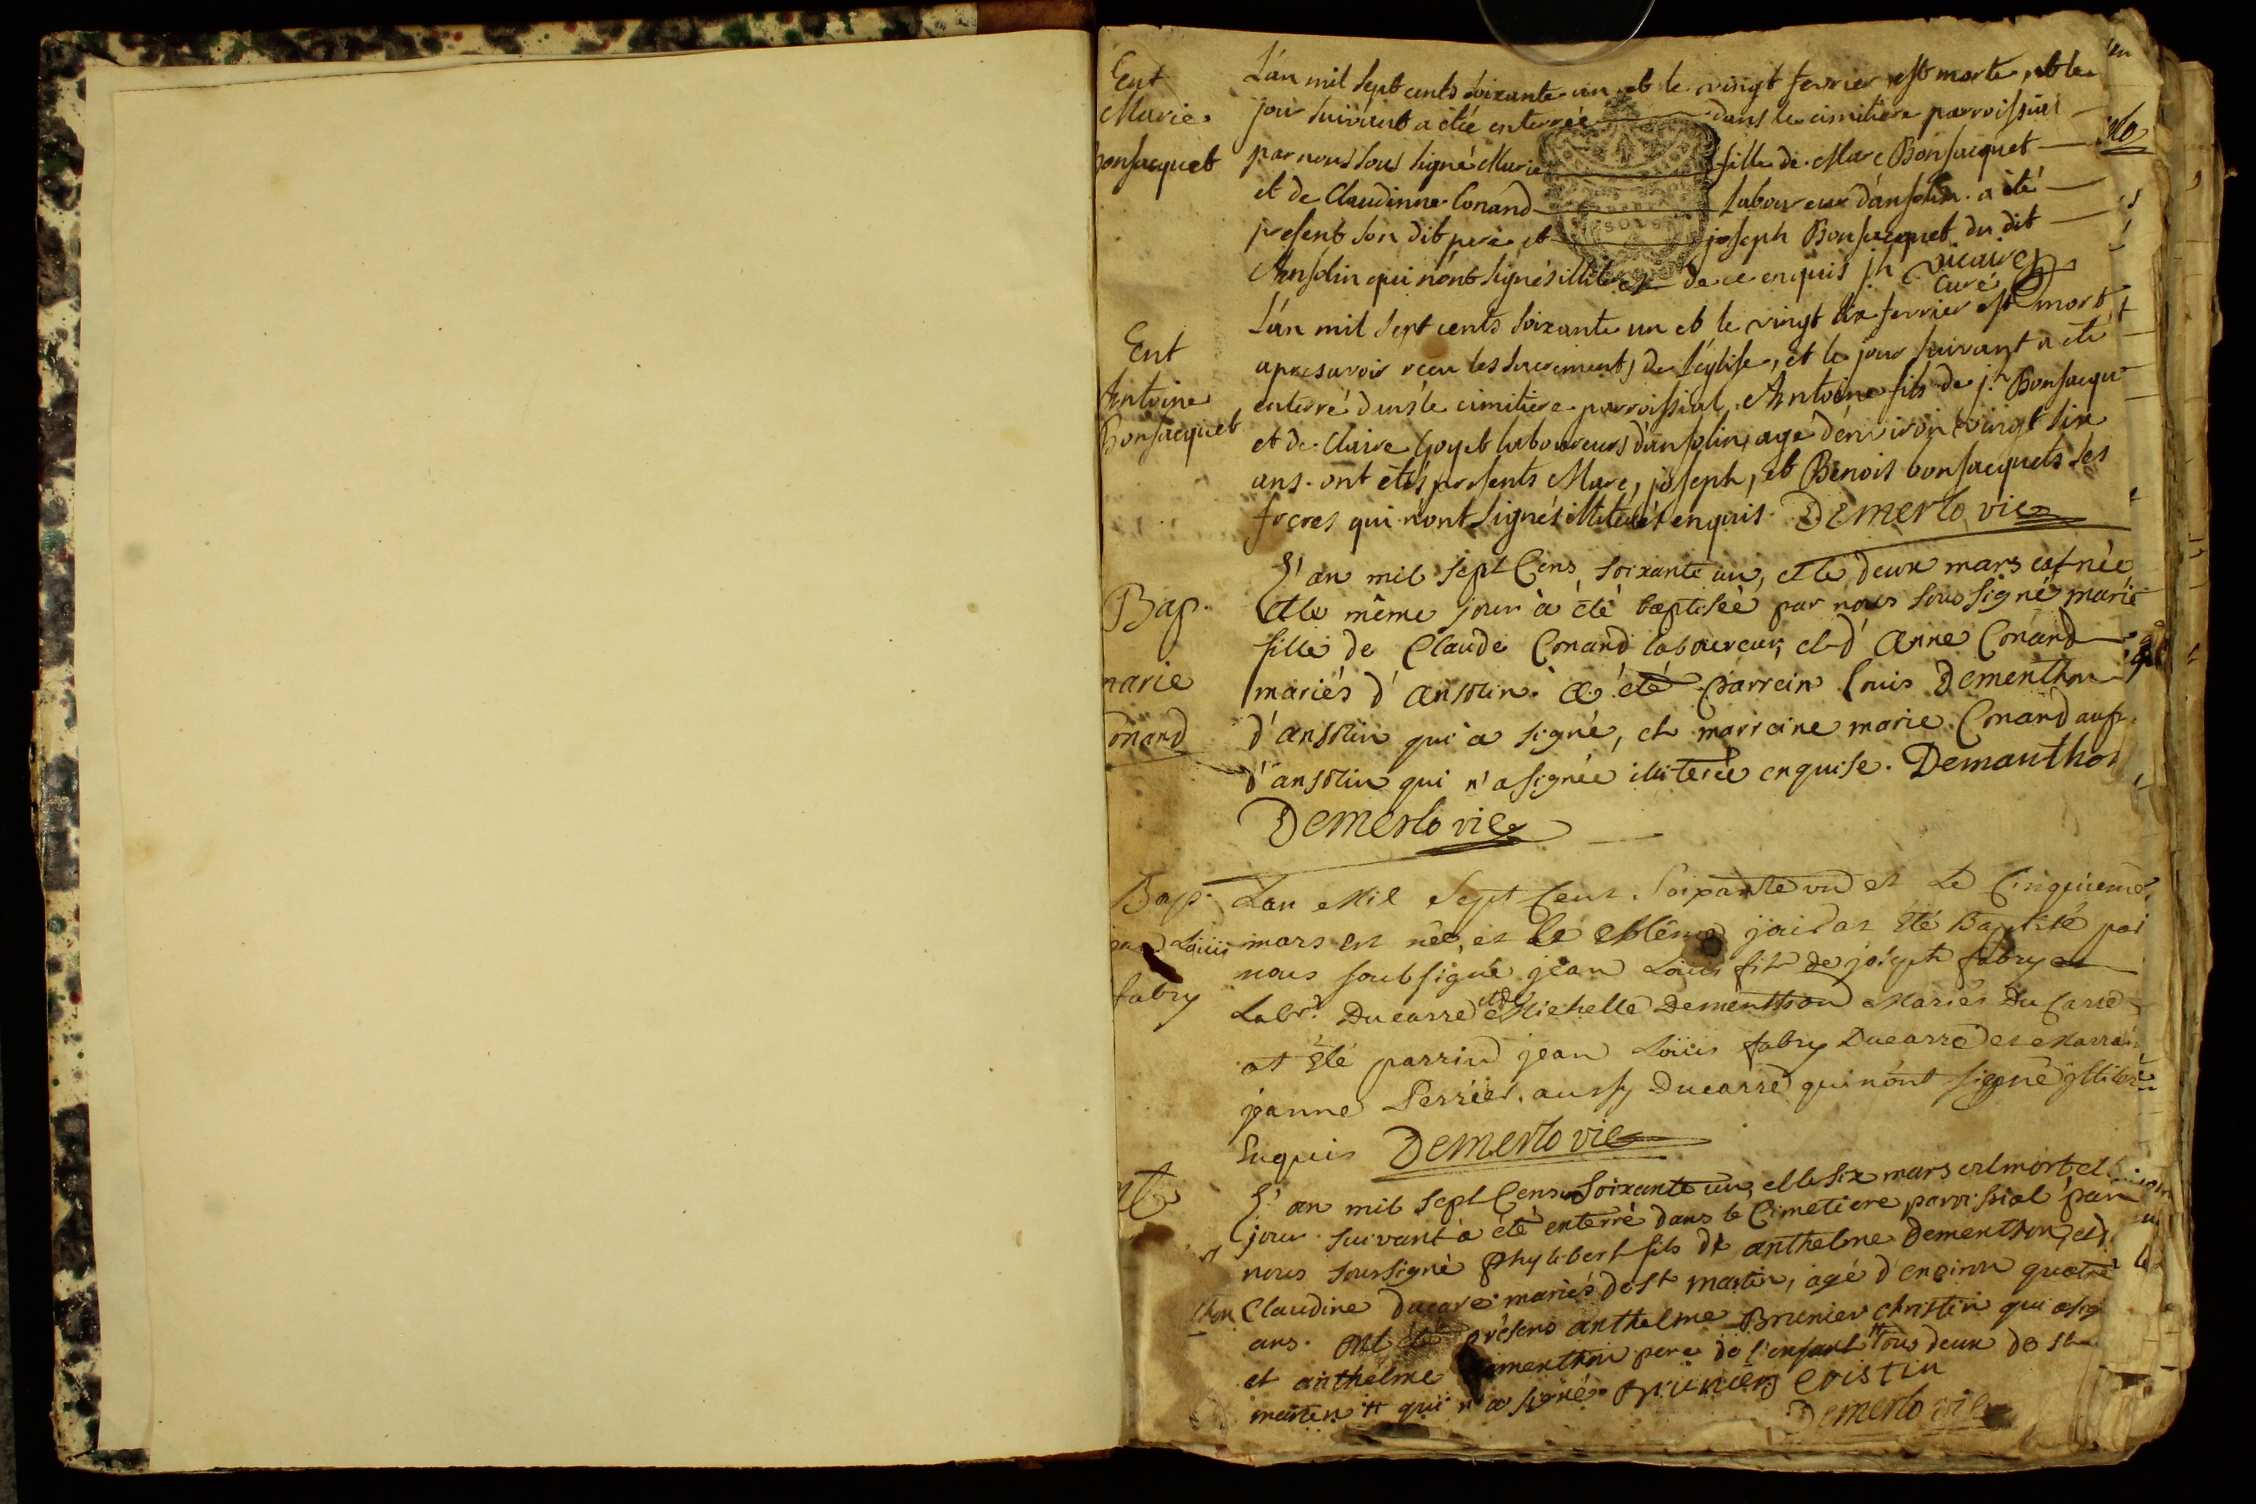 Ent
Marie
Bonsacquet
L'an mil sept cents soixante un et le vingt fevrier est morte et le
jour suivant a étée enterrée dans le cimitiere parroissial
par nous sous signé Marie fille de Marc Bonsacquet
et de Claudinne Conand laboureur d'ansolin a été
present son dit pere et joseph Bonsacquet du dit
Ansolin qui n'ont signés illiterés de ce enquis j.h vicaire
curé
Ent
Antoine
Bonsacquet
L'an mil sept cents soixante un et le vingt six fevrier est mort
apres avoir recu les sacrements de l'église, et le jour suivant a été
enterré dans le cimitiere parroissial Antoine fils de j.h Bonsacqu
et de Claire Goyet laboureurs d'ansolin, agé d'environ vingt six
ans. ont étés presents Marc, joseph, et Benois bonsacquets ses
freres qui n'ont signés illiterés enquis. Demerlo vic
Bap.
marie
Conand
L'an mil sept Cens soixante un, et le deux mars est née
et le même jour à été baptisée par nous sous signé marie
fille de Claude Conand laboureur, et d'Anne Conand
mariés d'ansolin. a été parrein Louis Dementhon
d'ansolin qui a signé, et marreine marie Conand auss
d'ansolin qui n'a signée illiterée enquise. Demanthon
Demerlo vic
Bap.
jean Louis
fabry
Lan Mil Sept Cens Soixante un et Le Cinquieme
mars est née, et le Même jour at été Baptisé par
nous soubsigné jean Louis fils de joseph fabry
Labr. Ducarre et de Michelle Dementhon Mariés Du Carre
at été parrin jean Louis fabry Ducarre et Marrai
jeanne Perrier aussy Ducarre qui n'ont signé illiter
Enquis Demerlo vic
L'an mil sept Cens Soixante un, et le six mars est mort et
jour suivant à été enterré dans le Cimetiere paroissial par
nous soussigné phylibert fils de anthelme Dementhon, et d
thon
Claudine ducare mariés de st martin, agé d'environ quatre
ans. ont été présens anthelme Brunier christin qui a sig
et anthelme Dementhon pere de l'enfant # tous deux de st
martin # qui n'a signé. Brunier cristin
Demerlo vic